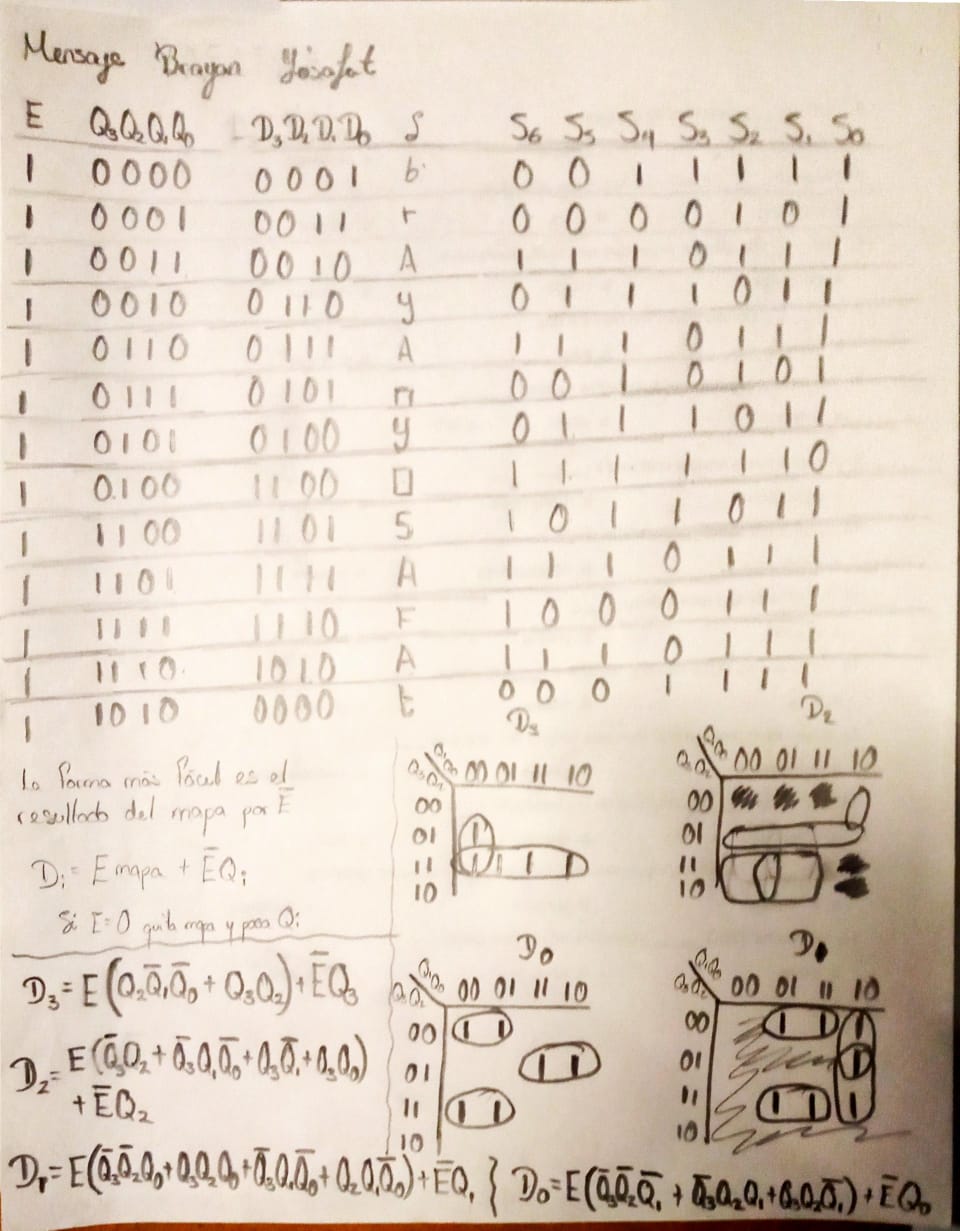 Mensaje Brayan Yosafat
E Q₃Q₂Q₁Q₀ D₃D₂D₁D₀ S S₆ S₅ S₄ S₃ S₂ S₁ S₀
1 0000 0001 b 0 0 1 1 1 1 1
1 0001 0011 r 0 0 0 0 1 0 1
1 0011 0010 A 1 1 1 0 1 1 1
1 0010 0110 y 0 1 1 1 0 1 1
1 0110 0111 A 1 1 1 0 1 1 1
1 0111 0101 n 0 0 1 0 1 0 1
1 0101 0100 y 0 1 1 1 0 1 1
1 0100 1100 O 1 1 1 1 1 1 0
1 1100 1101 S 1 0 1 1 0 1 1
1 1101 1111 A 1 1 1 0 1 1 1
1 1111 1110 F 1 0 0 0 1 1 1
1 1110 1010 A 1 1 1 0 1 1 1
1 1010 0000 t 0 0 0 1 1 1 1
La forma más fácil es el
resultado del mapa por E̅
Dᵢ = E mapa + E̅Qᵢ
Si E=0 quita mapa y pasa Qᵢ
D₃
Q₁Q₀
Q₃Q₂ 00 01 11 10
00
01 1
11 1 1 1 1
10
D₂
Q₁Q₀
Q₃Q₂ 00 01 11 10
00
01
11
10
D₀
Q₁Q₀
Q₃Q₂ 00 01 11 10
00 1 1
01 1 1
11 1 1
10
D₁
Q₁Q₀
Q₃Q₂ 00 01 11 10
00 1 1 1
01 1
11 1 1 1
10
D₃ = E(Q₂Q̅₁Q̅₀ + Q₃Q₂) + E̅Q₃
D₂ = E(Q̅₃Q₂ + Q̅₃Q₁Q̅₀ + Q₃Q̅₁ + Q₃Q₀)
+ E̅Q₂
D₁ = E(Q̅₃Q̅₂Q₀ + Q₃Q₂Q₀ + Q̅₃Q₁Q̅₀ + Q₂Q₁Q̅₀) + E̅Q₁ { D₀ = E(Q̅₃Q̅₂Q̅₁ + Q̅₃Q₂Q₁ + Q₃Q₂Q̅₁) + E̅Q₀